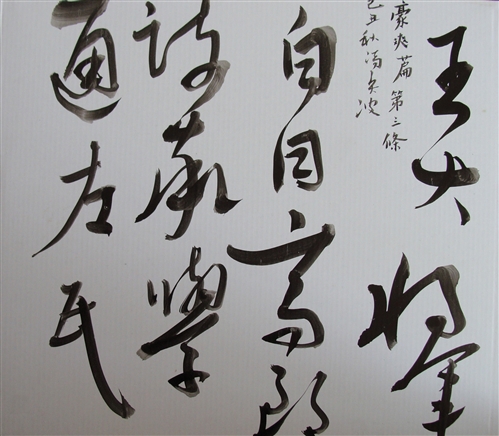 王大將軍
豪爽篇第三條
己丑秋馮波
自目高朗
疎率學
通左氏